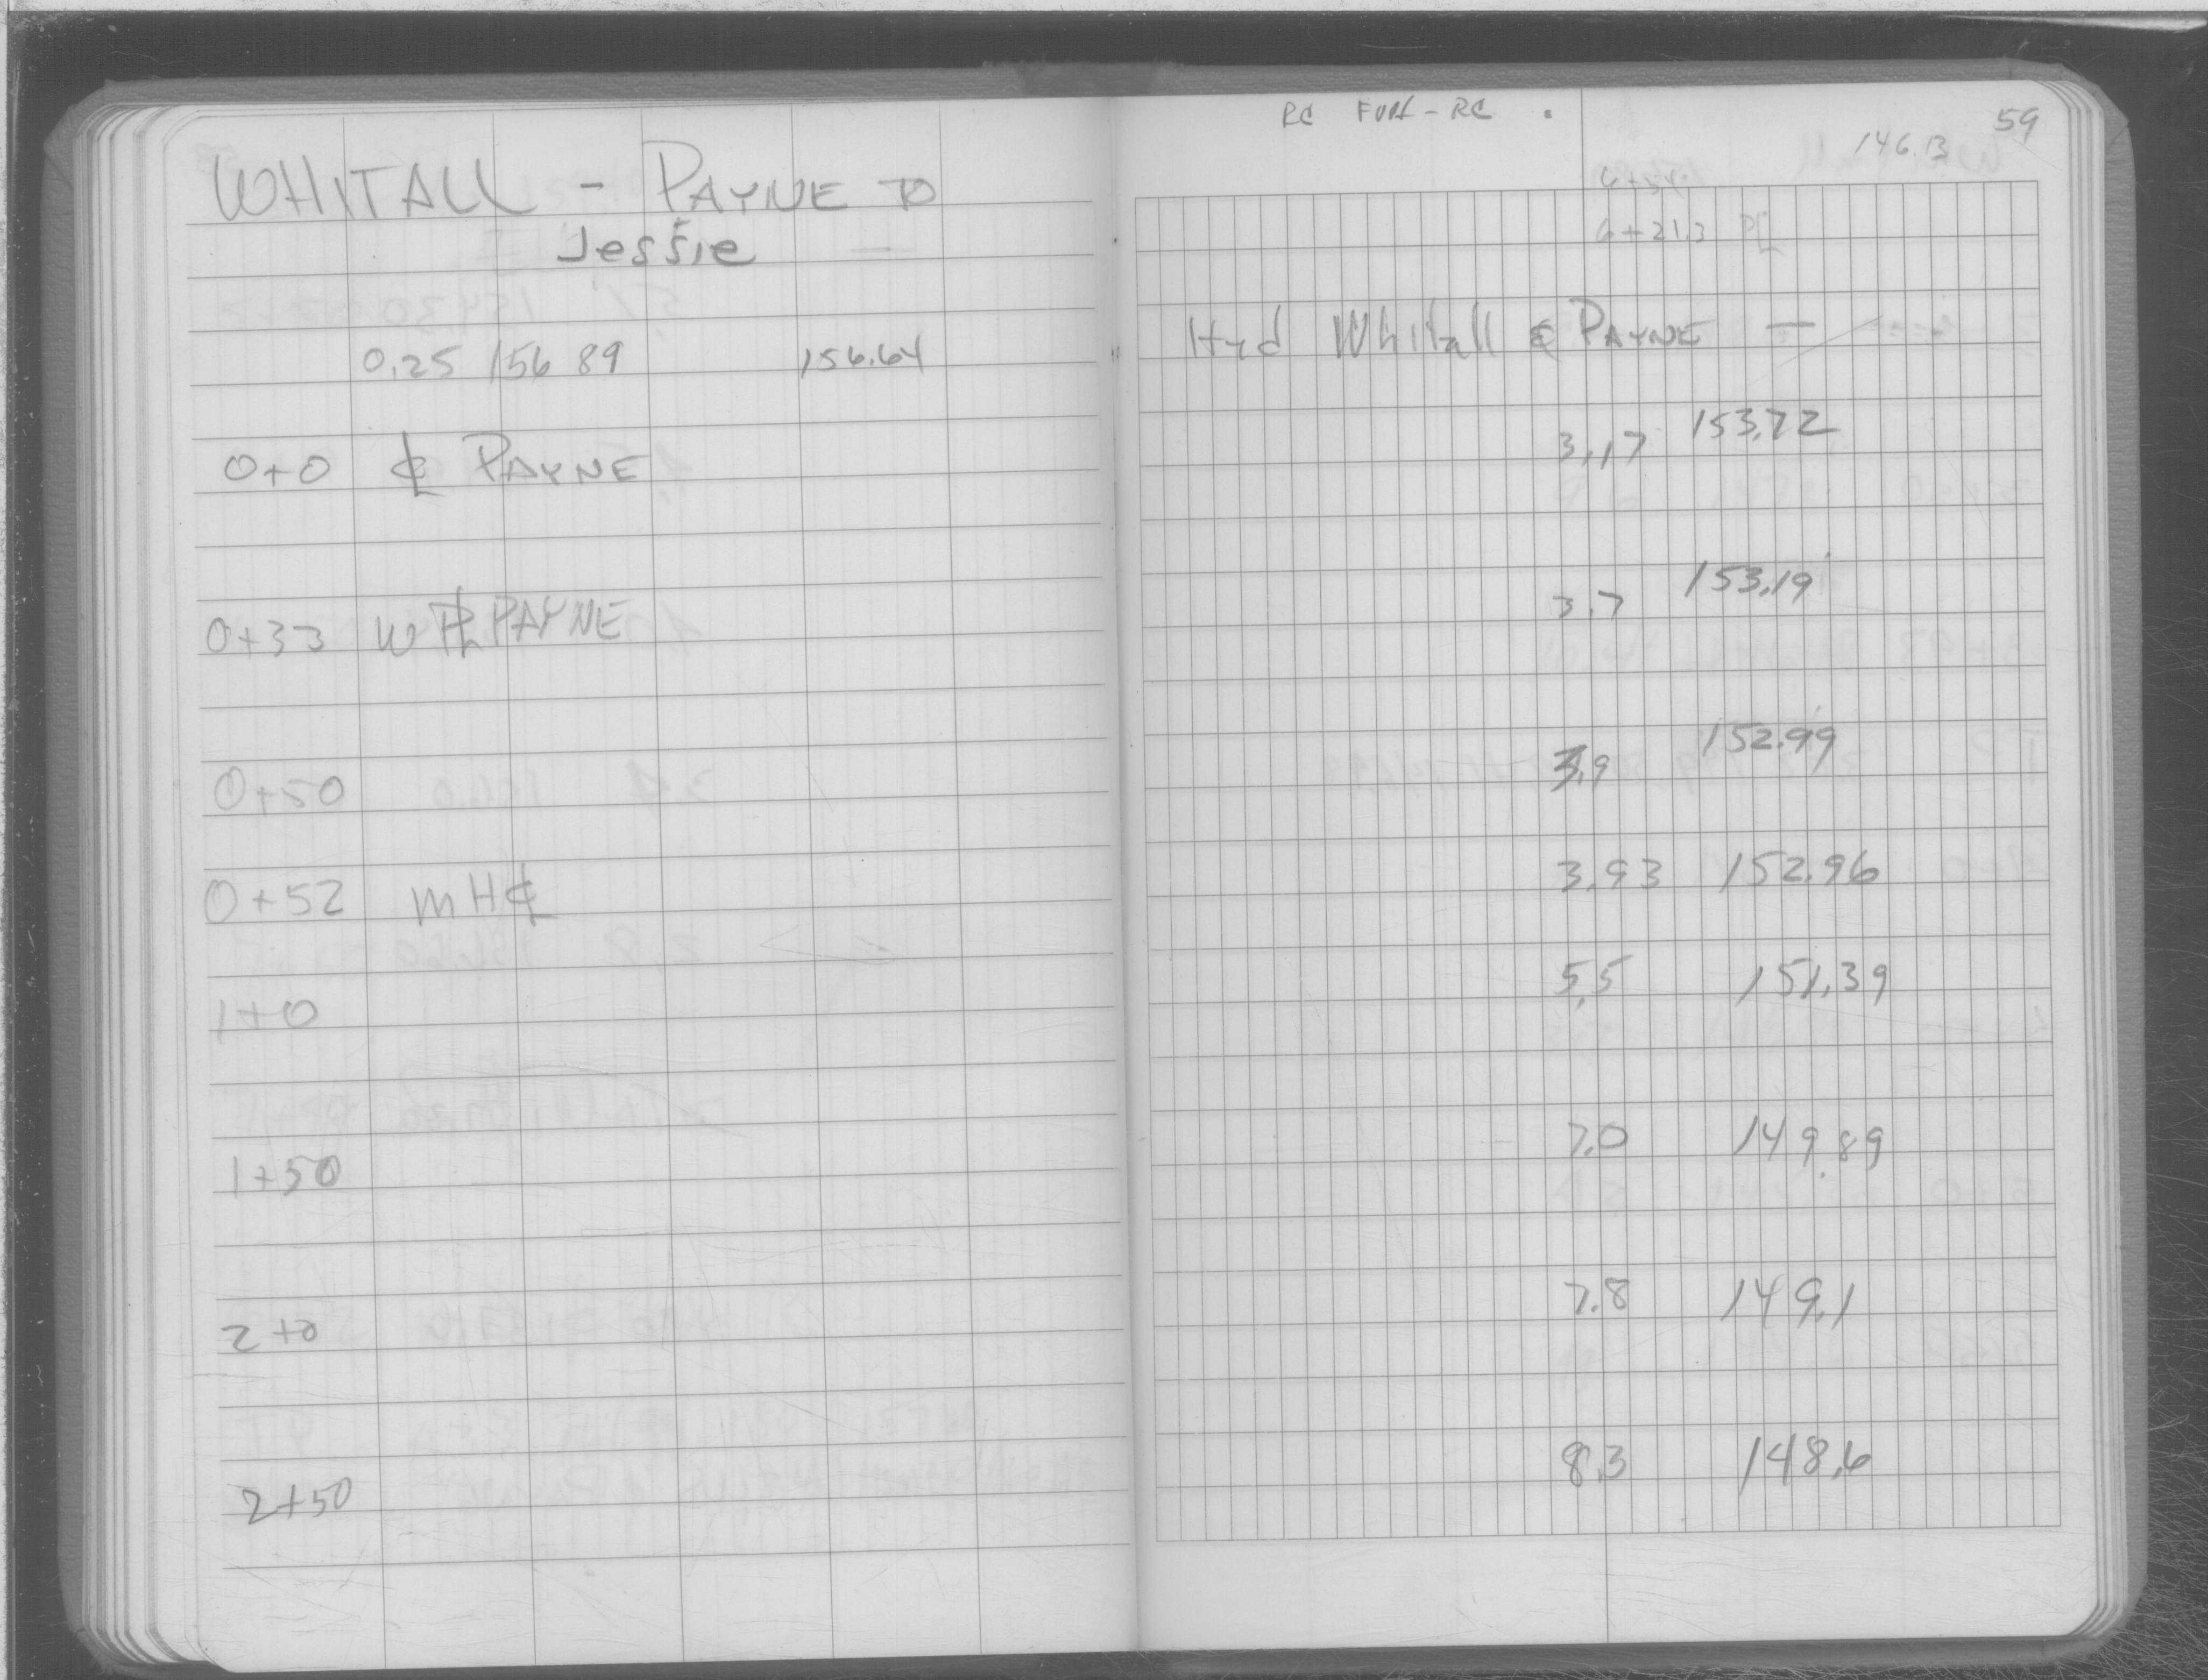 WHITALL - PAYNE TO
Jessie —
0.25 156 89 156.64
0+0 ℄ PAYNE
0+33 W ⅊ PAYNE
0+50
0+52 MH ℄
1+0
1+50
2+0
2+50
RC FURL - RC .
59
146.13
6+21.3 ⅊
Hyd Whitall & PAYNE —
3.17 153.72
3.7 153.19
3.9 152.99
3.93 152.96
5.5 151.39
7.0 149.89
7.8 149.1
8.3 148.6